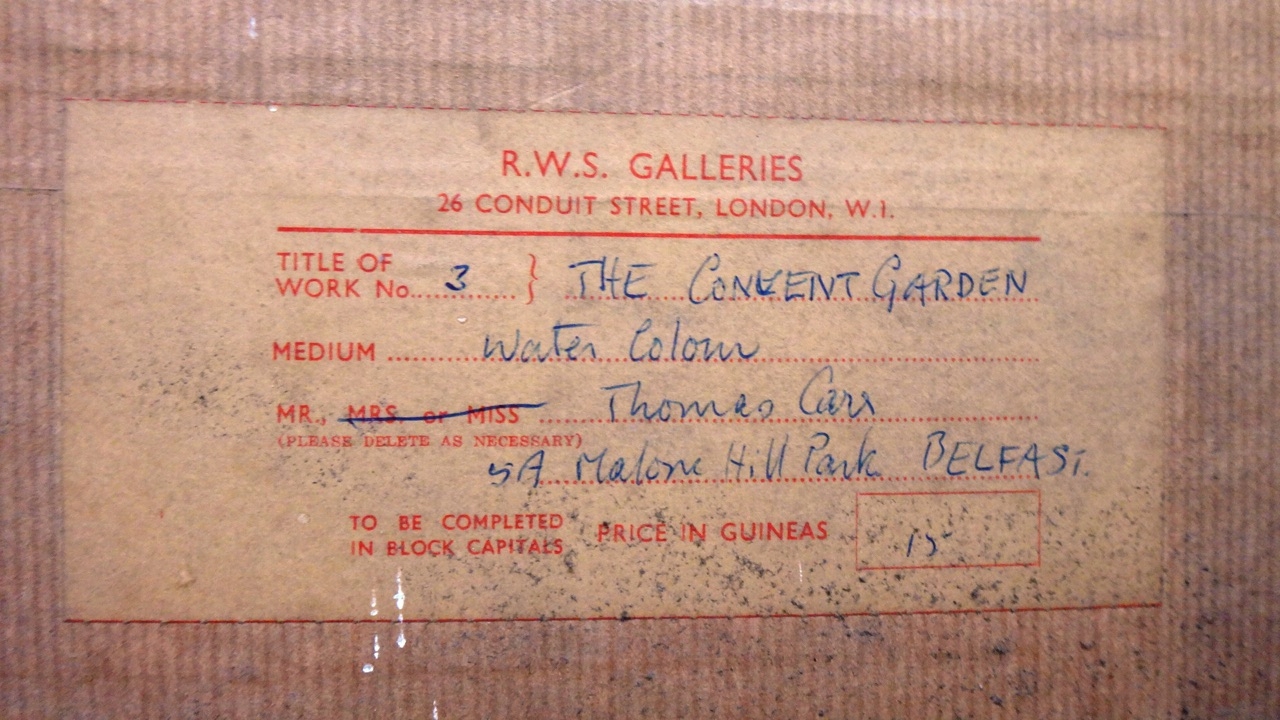 R.W.S. GALLERIES
26 CONDUIT STREET, LONDON, W.1.
TITLE OF
WORK No. 3 } THE CONVENT GARDEN
MEDIUM Water Colour
MR., MRS. or MISS Thomas Carr
(PLEASE DELETE AS NECESSARY)
5A Malone Hill Park BELFAST.
TO BE COMPLETED
IN BLOCK CAPITALS PRICE IN GUINEAS 15